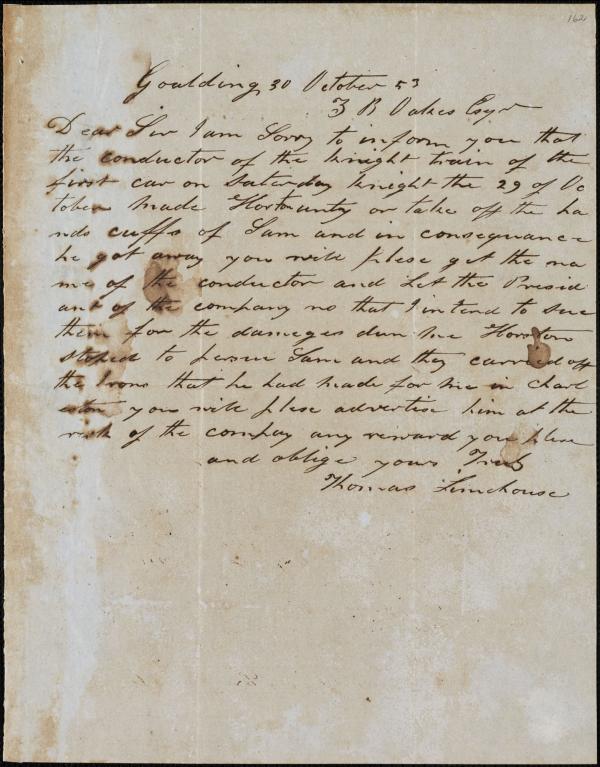 162
Goulding 30 October 53
Z B Oakes Esqr
Dear Sir I am Sorry to inform you that
the conductor of the knight train of the
first car on Saturday knight the 29 of Oc
tober made Hortunty or take off the ha
nds cuffs of Sam and in consequance
he got away you will plese get the na
me of the conductor and Let the Presid
ant of the company no that I intend to sue
them for the dameges dun me Horston
stoped to persue Sam and they carried off
the Irons that he had made for me in Charl
eston you will plese advertise him at the
risk of the compay any reward you plese
and oblige yours Truly
Thomas Limehouse